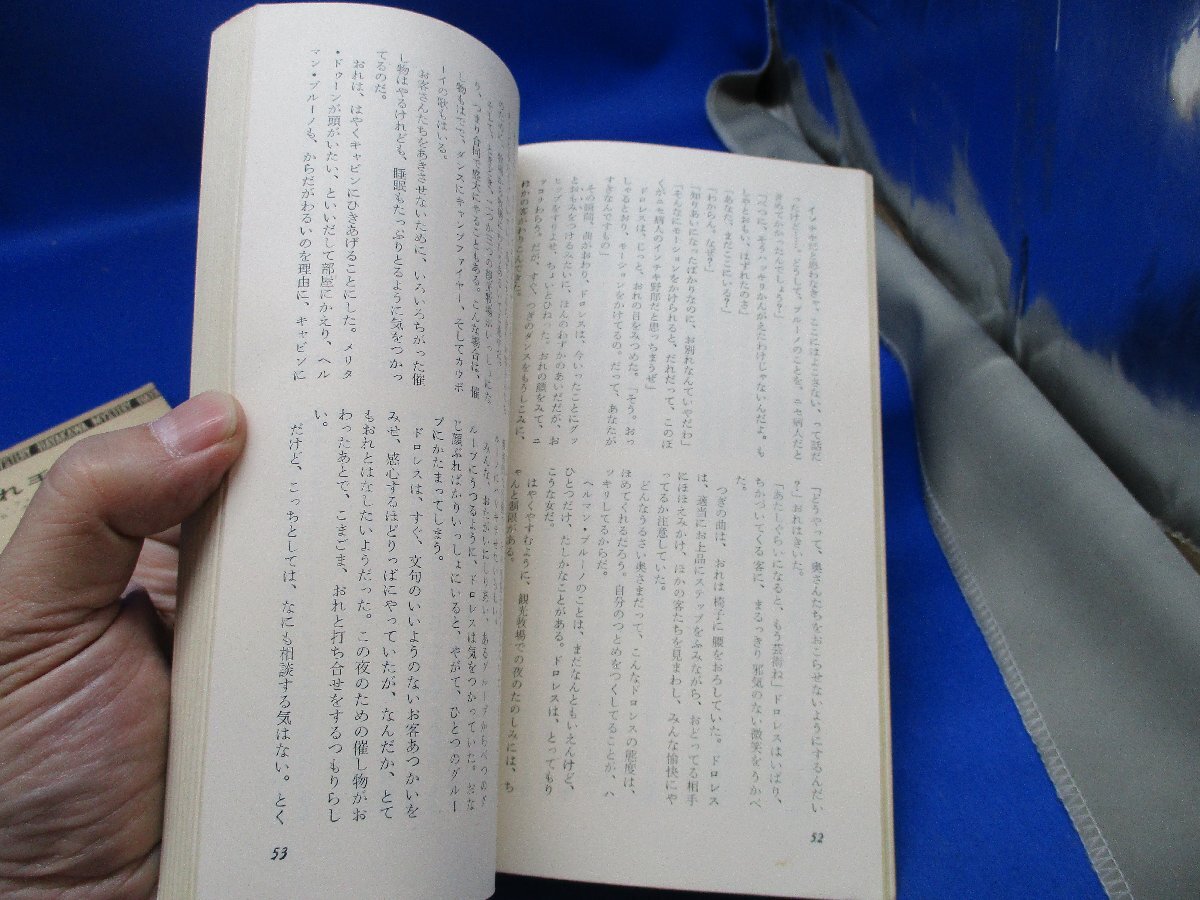 インチキだと思わなきゃ、ここにはよこさない、って話だ
ったけど……。どうして、ブルーノのことを、ニセ病人だと
きめてかかったんでしょう？」
「べつに、そうハッキリかんがえたわけじゃないんだよ。も
しやとおもい、はずれたのさ」
「あなた、まだここにいる？」
「わからん。なぜ？」
「知りあいになったばかりなのに、お別れなんていやだわ」
「そんなにモーションをかけられると、だれだって、このぼ
くがニセ病人のインチキ野郎だと思っちまうぜ」
ドロレスは、じっと、おれの目をみつめた。「そう。おっ
しゃるとおり、モーションをかけてるの。だって、あなたが
すきなんですもの」
その瞬間、曲がおわり、ドロレスは、今いったことにグッ
とおもみを、つけるみたいに、ほんのわずかのあいだだが、お
ヒップをすりよせ、ちょいとひねった。おれの顔をみて、ニ
ッコリわらう。だが、すぐ、つぎのダンスをもうしこみに、
ほかの客がわりこんできた。
「どうやって、奥さんたちをおこらせないようにするんだい
？」おれはきいた。
「あたしぐらいになると、もう芸術ね」ドロレスはいばり、
ちかづいてくる客に、まるっきり邪気のない微笑をうかべ
た。
つぎの曲は、おれは椅子に腰をおろしていた。ドロレス
は、適当にお上品にステップをふみながら、おどってる相手
にほほえみかけ、ほかの客たちを見まわし、みんな愉快にや
ってるか注意していた。
どんなうるさい奥さまだって、こんなドロレスの態度は、
ほめてくれるだろう。自分のつとめをつくしてることが、ハ
ッキリしてるからだ。
ヘルマン・ブルーノのことは、まだなんともいえんけど、
ひとつだけ、たしかなことがある。ドロレスは、とってもり
こうな女だ。
はやくやすむように、観光牧場での夜のたのしみには、ち
ゃんと制限がある。
52
り、つまり合同で盛大にやることもある。こんな場合は、催
し物もはで で、ダンスにキャンプファイヤー、そしてカウボ
ーイの歌もはいる。
お客さんたちをあきさせないために、いろいろちがった催
し物はやるけれども、睡眠もたっぷりとるように気をつかっ
てるのだ。
おれは、はやくキャビンにひきあげることにした。メリタ
・ドゥーンが頭がいたい、といいだして部屋にかえり、ヘル
マン・ブルーノも、からだがわるいのを理由に、キャビンに
ループにうつるように、ドロレスは気をつかっていた。おな
じ顔ぶればかりいっしょにいると、やがて、ひとつのグルー
プにかたまってしまう。
ドロレスは、すぐ、文句のいいようのないお客あつかいを
みせ、感心するほどりっぱにやっていたが、なんだか、とて
もおれとはなしたいようだった。この夜のための催し物がお
わったあとで、こまごま、おれと打ち合せをするつもりらし
い。
だけど、こっちとしては、なにも相談する気はない。とく
53
HAYAKAWA MYSTERY